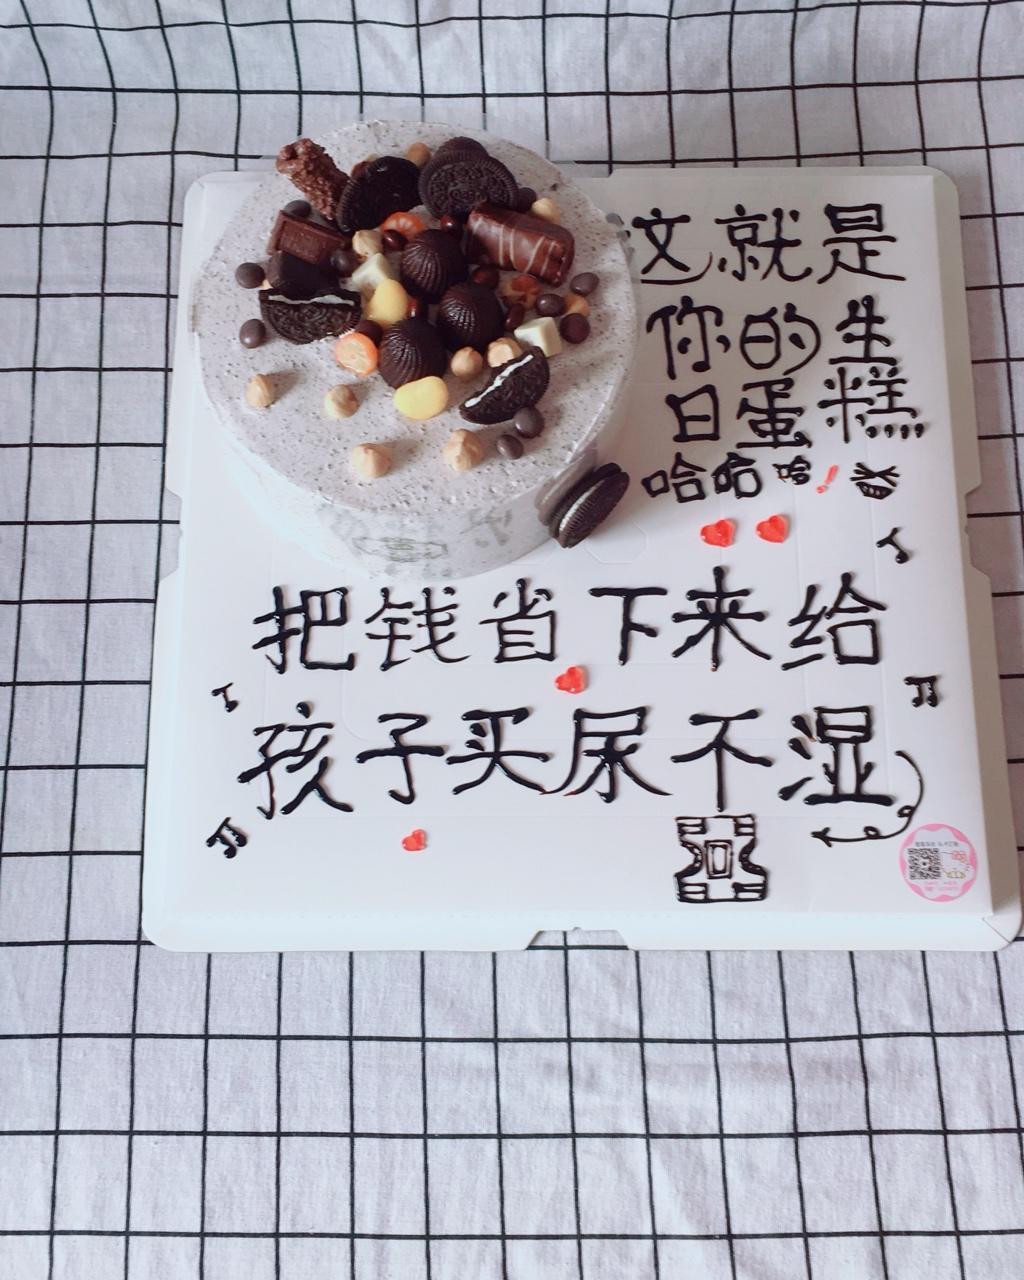 这就是
你的生
日蛋糕
哈哈哈!
把钱省下来给
孩子买尿不湿